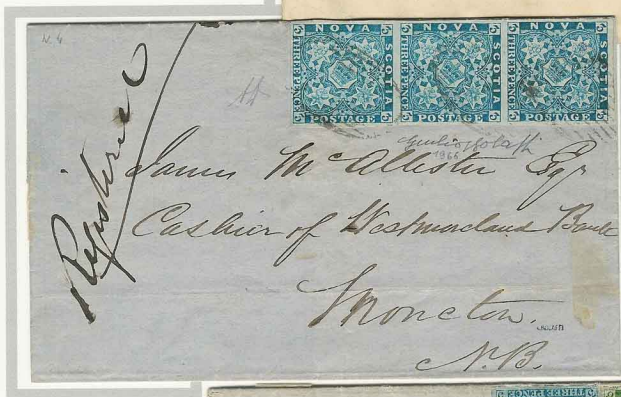 N. 4
NOVA SCOTIA POSTAGE THREE PENCE
NOVA SCOTIA POSTAGE THREE PENCE
NOVA SCOTIA POSTAGE THREE PENCE
1966
Registered
James McAllister Esqr
Cashier of Westmoreland Bank
Moncton.
N.B.